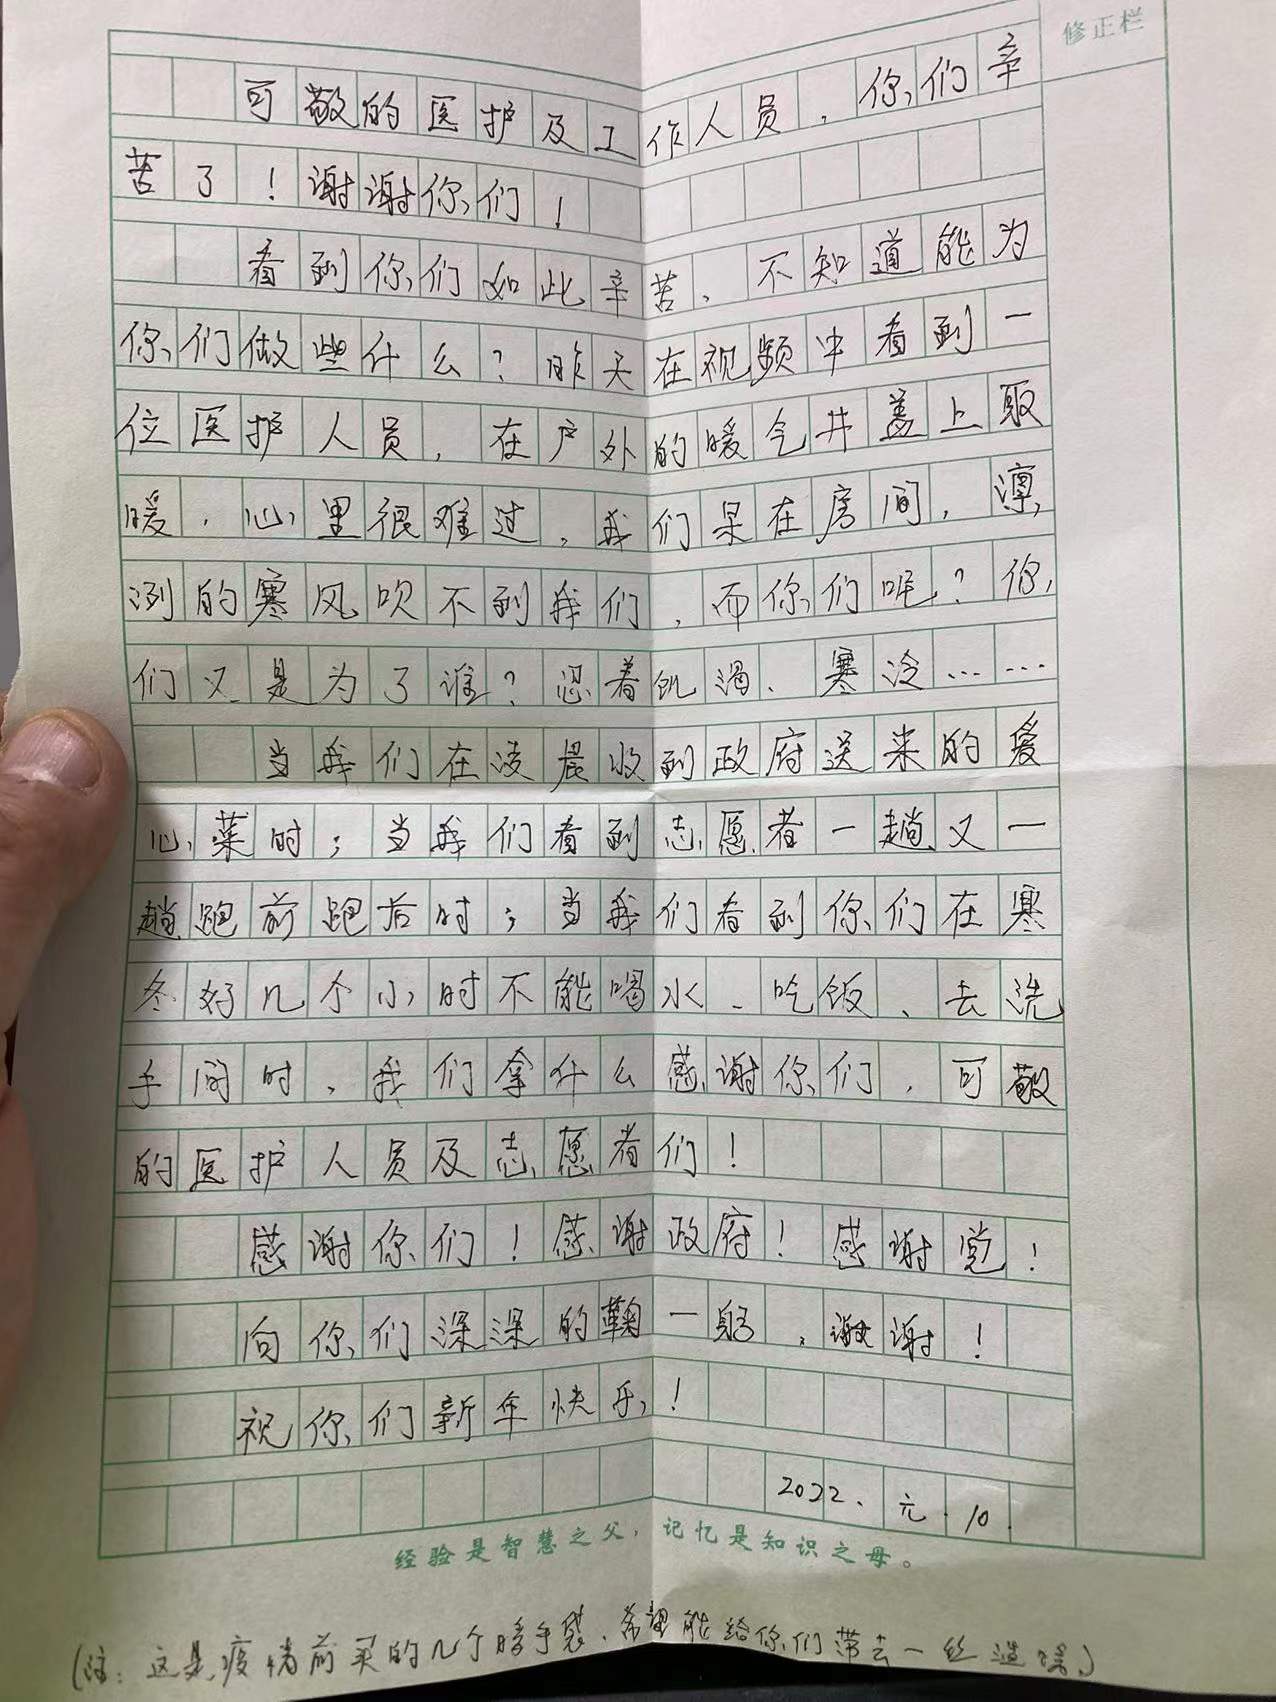 修正栏
可敬的医护及工作人员，你们辛
苦了！谢谢你们！
看到你们如此辛苦，不知道能为
你们做些什么？昨天在视频中看到一
位医护人员，在户外的暖气井盖上取
暖，心里很难过，我们呆在房间，凛
冽的寒风吹不到我们，而你们呢？你
们又是为了谁？忍着饥渴、寒冷……
当我们在凌晨收到政府送来的爱
心菜时；当我们看到志愿者一趟又一
趟跑前跑后时；当我们看到你们在寒
冬好几个小时不能喝水、吃饭、去洗
手间时，我们拿什么感谢你们，可敬
的医护人员及志愿者们！
感谢你们！感谢政府！感谢党！
向你们深深的鞠一躬，谢谢！
祝你们新年快乐！
2022.元.10.
经验是智慧之父，记忆是知识之母。
(注：这是疫情前买的几个暖手袋，希望能给你们带去一丝温暖)